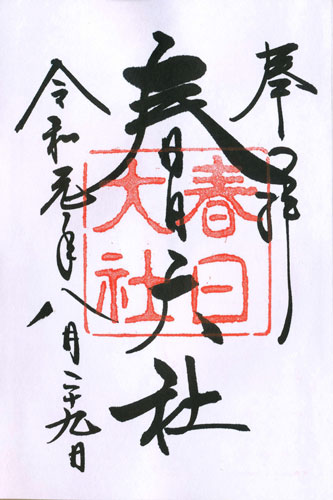 奉拝
春日大社
春日大社
令和元年八月二十九日